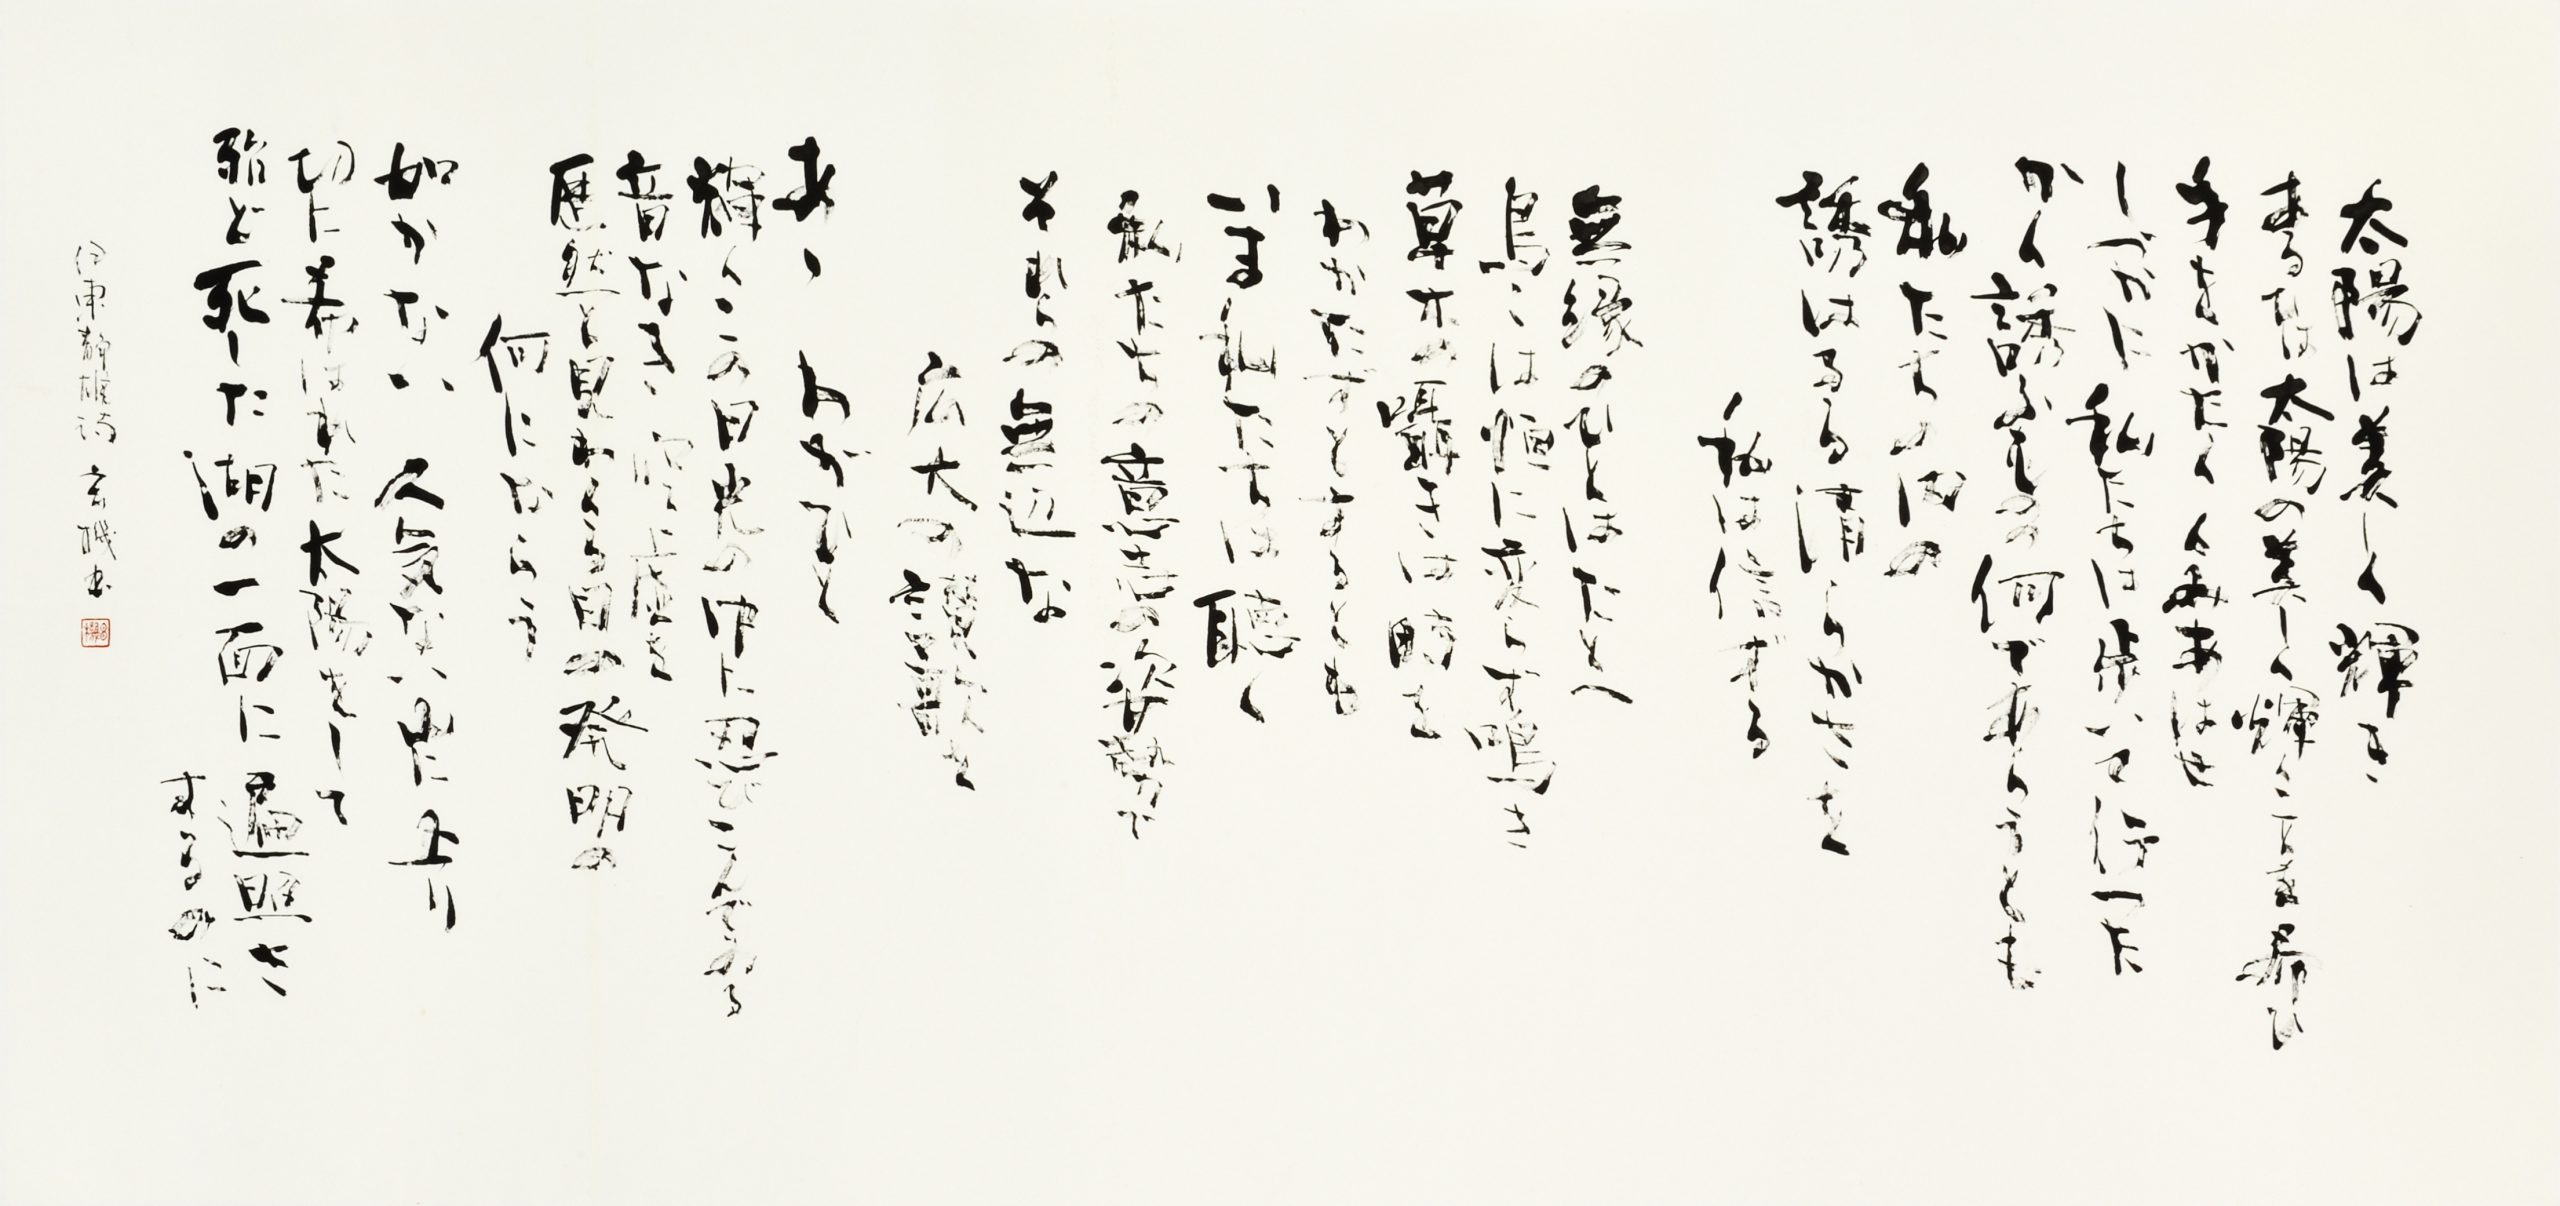 太陽は美しく輝き
あるひは太陽の美しく輝くことを希ひ
手をかたくくみあはせ
しづかに私たちは歩いて行つた
かく誘ふものの何であらうとも
私たちの内の
誘はるる清らかさを
私は信ずる
無縁のひとはたとへ
鳥々は恒に変らず鳴き
草木の囁きは時を
わかたずとするとも
いま私たちは聴く
私たちの意志の姿勢で
それらの無辺な
広大の讃歌を
あゝ わがひと
輝くこの日光の中に忍びこんでゐる
音なき空虚を
歴然と見わくる目の発明の
何にならう
如かない 人気ない山に上り
切に希はれた太陽をして
殆ど死した湖の一面に遍照さ
するのに
伊東静雄詩 書